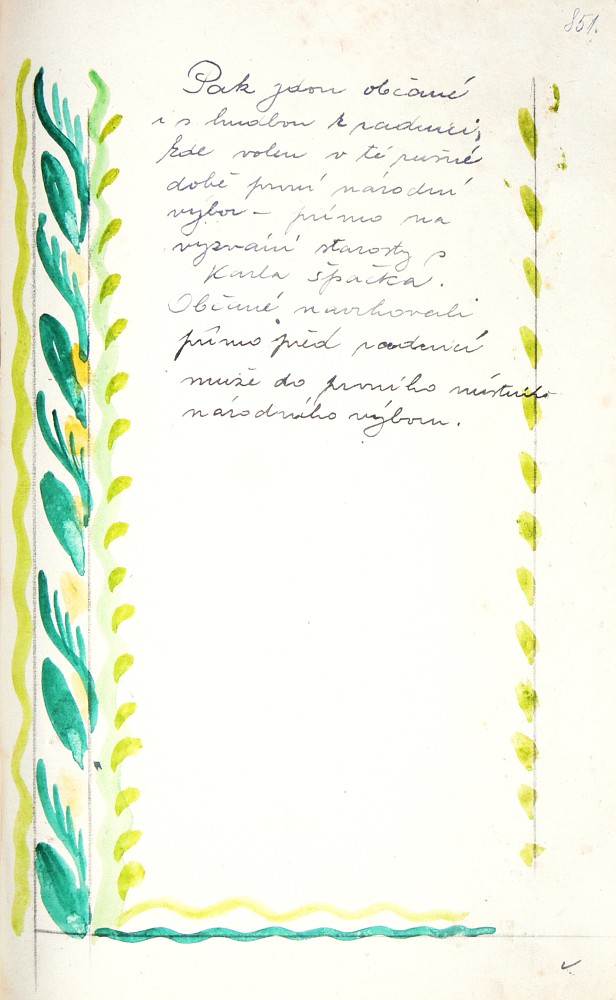 851.
Pak jdou občané
i s hudbou k radnici,
kde volen v té rušné
době první národní
výbor – přímo na
vyzvání starosty p
Karla Špačka.
Občané navrhovali
přímo před radnicí
muže do prvního místního
národního výboru.